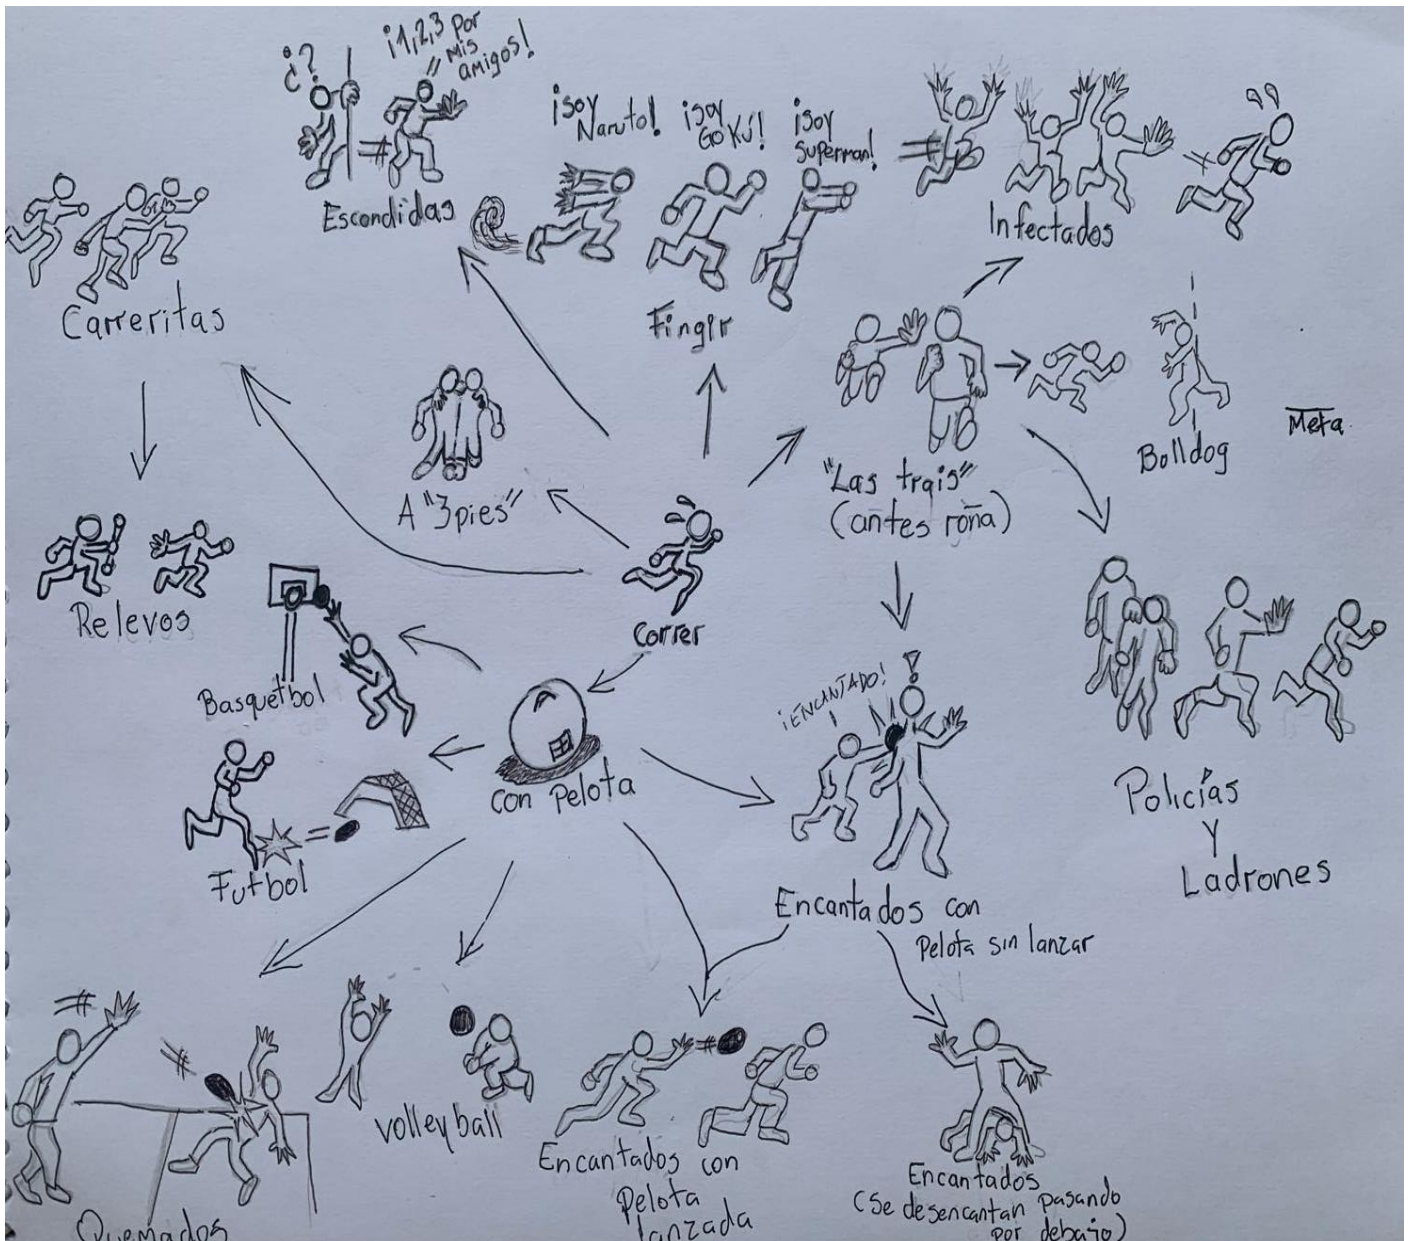 ¿?
¡1,2,3 por
mis
amigos!
Escondidas
¡soy
Naruto!
¡soy
GoKú!
¡soy
superman!
Fingir
Infectados
Carreritas
A "3 pies"
"Las trais"
(antes roña)
Bolldog
Meta
Relevos
Correr
Basquetbol
con pelota
¡ENCANTADO!
!
Futbol
Policías
Y
Ladrones
Encantados con
pelota sin lanzar
volleyball
Encantados con
pelota
lanzada
Encantados
(se desencantan pasando
por debajo)
Quemados